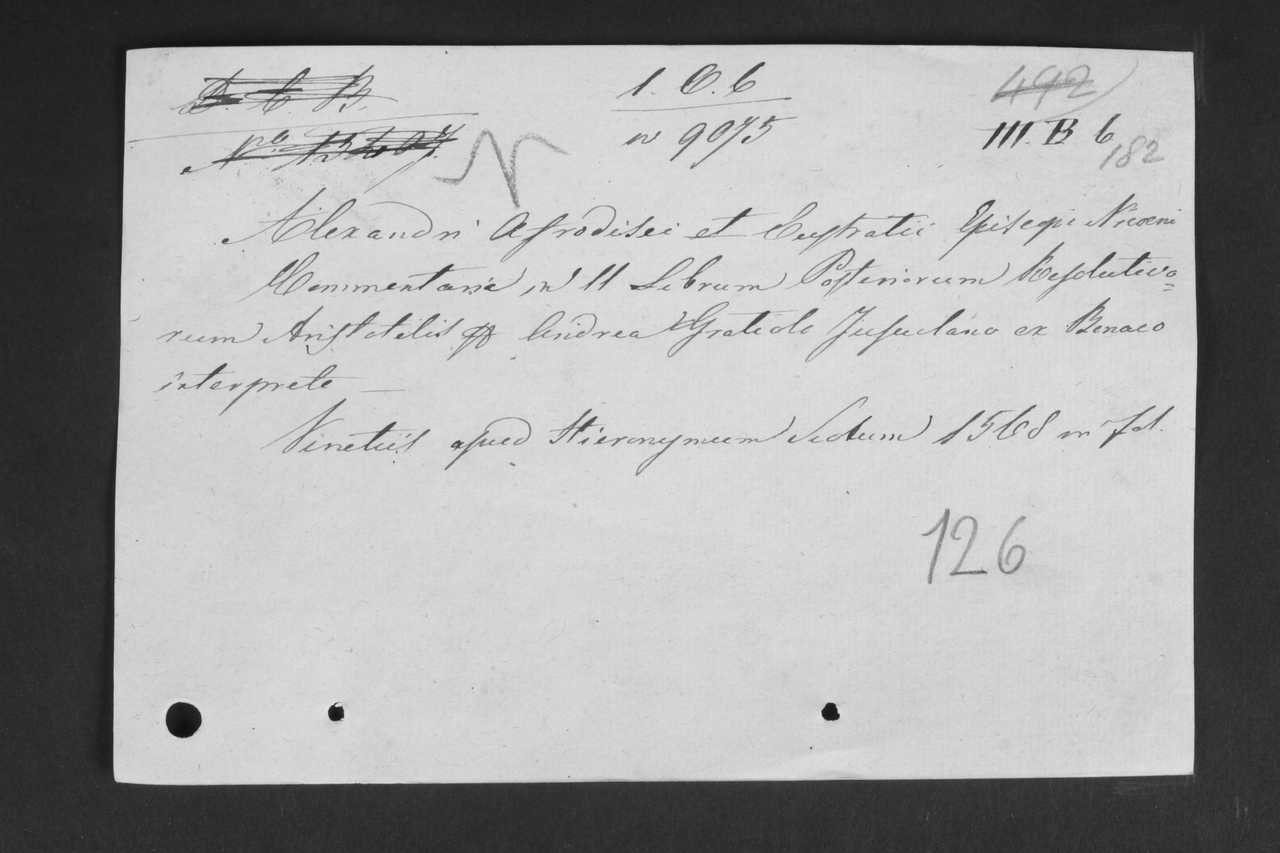 D. C. B. 1. C. 6 492
No. 13407. N n 9075 III. B 6
182
Alexandri Afrodisei et Eustratii Episcopi Niceni
Commentaria in II Librum Posteriorum Resolutivo=
rum Aristotelis Andrea Gratiolo Jusulano ex Benaco
interprete —
Venetiis apud Hieronymum Scotum 1568 in fol.
126